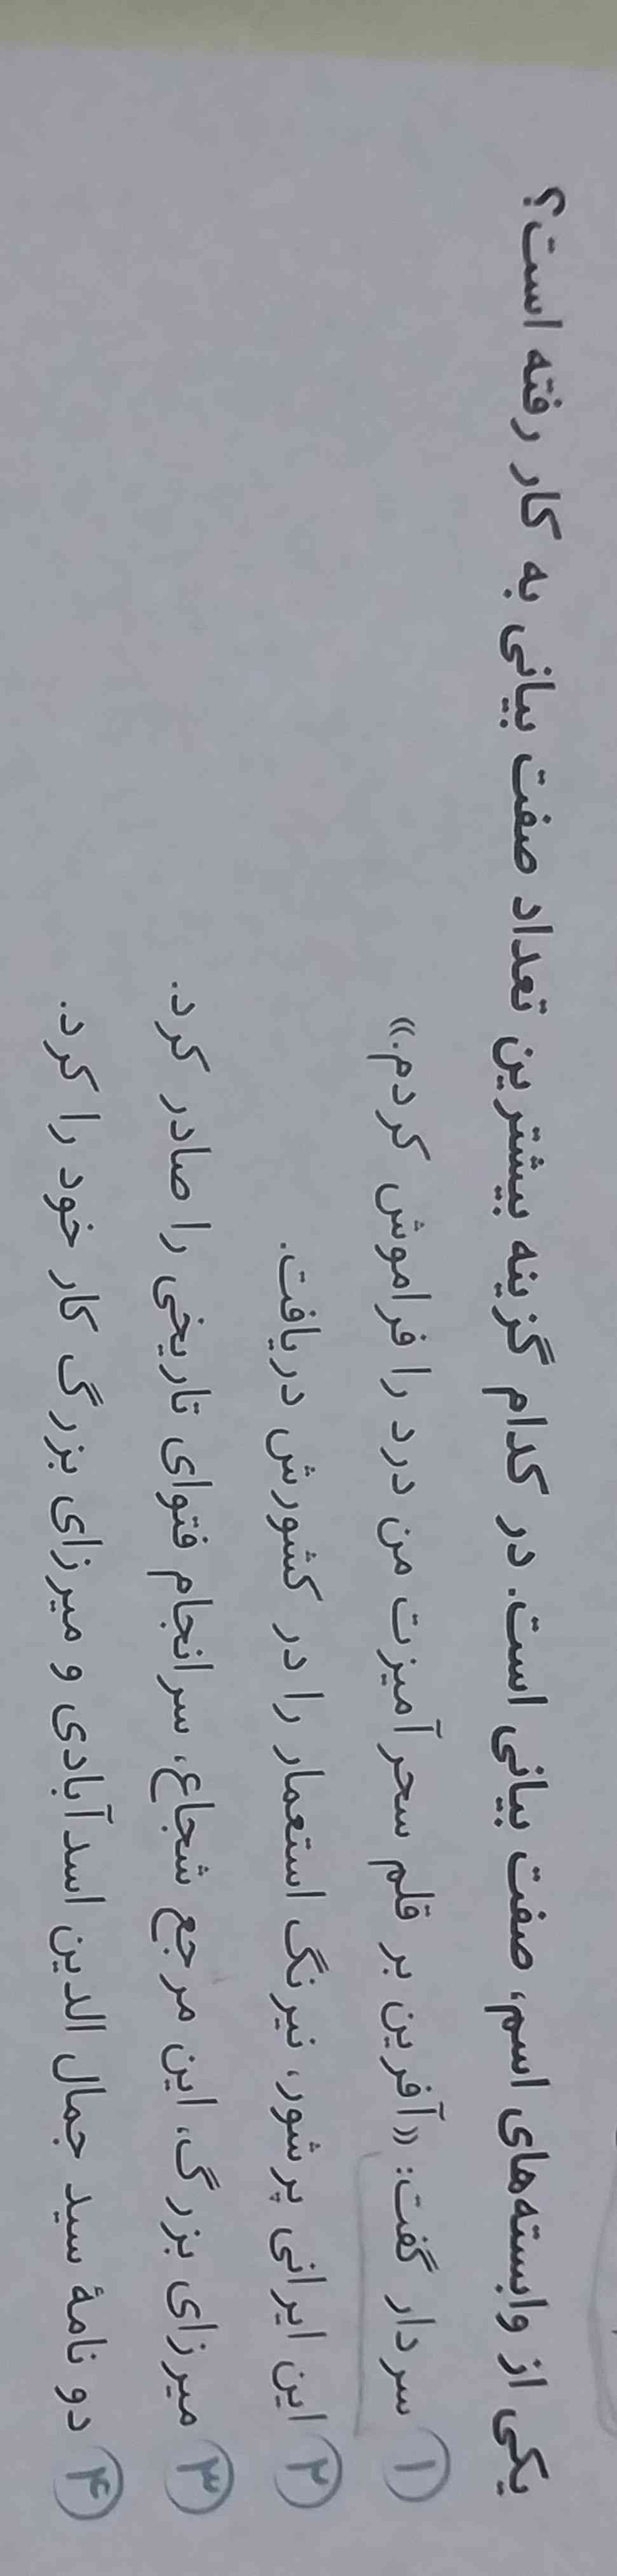 یکی از وابسته‌های اسم، صفت بیانی است. در کدام گزینه بیشترین تعداد صفت بیانی به کار رفته است؟
۱ سردار گفت: «آفرین بر قلم سحرآمیزت من درد را فراموش کردم.»
۲ این ایرانی پرشور، نیرنگ استعمار را در کشورش دریافت.
۳ میرزای بزرگ، این مرجع شجاع، سرانجام فتوای تاریخی را صادر کرد.
۴ دو نامهٔ سید جمال الدین اسدآبادی و میرزای بزرگ کار خود را کرد.